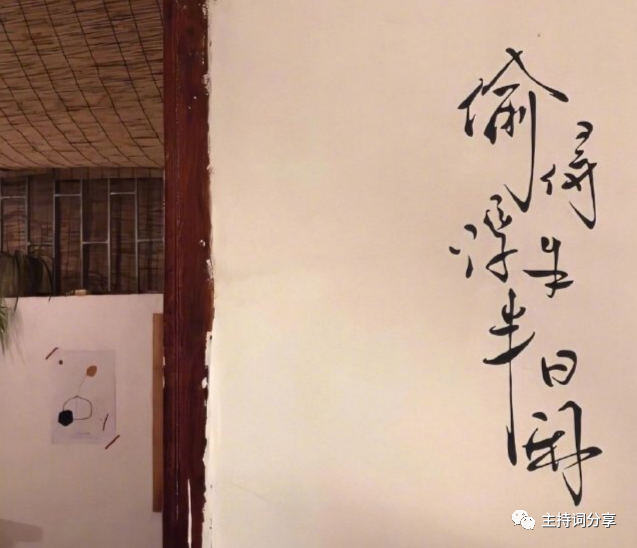 偷得浮生半日闲
主持词分享